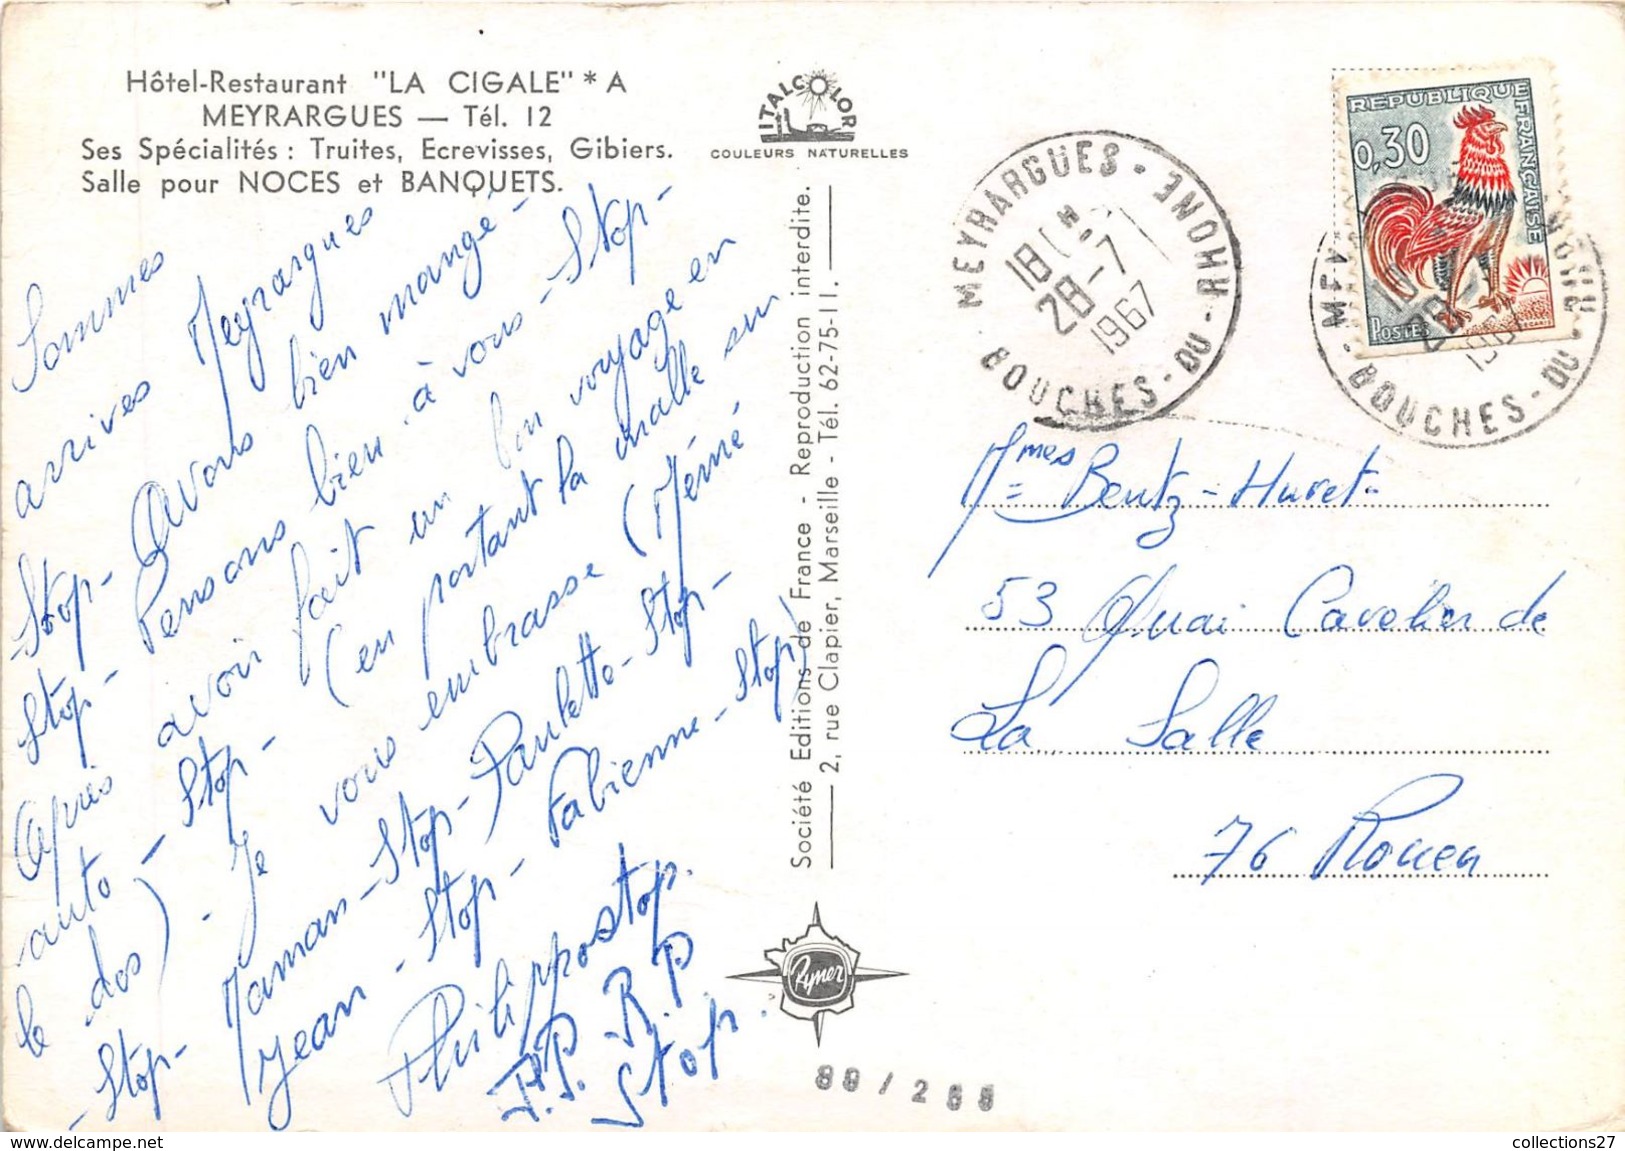 Hôtel-Restaurant "LA CIGALE" * A
MEYRARGUES — Tél. 12
Ses Spécialités : Truites, Ecrevisses, Gibiers.
Salle pour NOCES et BANQUETS.
Sommes
arrivés Meyrargues
Stop - Avons bien mangé -
Stop - Pensons bien à vous - Stop -
Après avoir fait un bon voyage en
auto - Stop - (en portant la malle sur
le dos). Je vous embrasse (Mémé
- Stop - Maman - Stop - Paulette - Stop -
Jean - Stop - Fabienne - Stop)
Philippostop.
P.P.R.P
Stop.
ITALCOLOR
COULEURS NATURELLES
Société Editions de France - Reproduction interdite.
2, rue Clapier, Marseille - Tél. 62-75-11.
Rymer
88 / 266
MEYRARGUES - BOUCHES-DU-RHONE
18 H
28-7
1967
REPUBLIQUE FRANÇAISE
0,30
POSTES
DECARIS
MEYRARGUES - BOUCHES-DU-RHONE
18
28-7
1967
Mmes Bentz - Huret
53 Quai Cavelier de
La Salle
76 Rouen
collections27